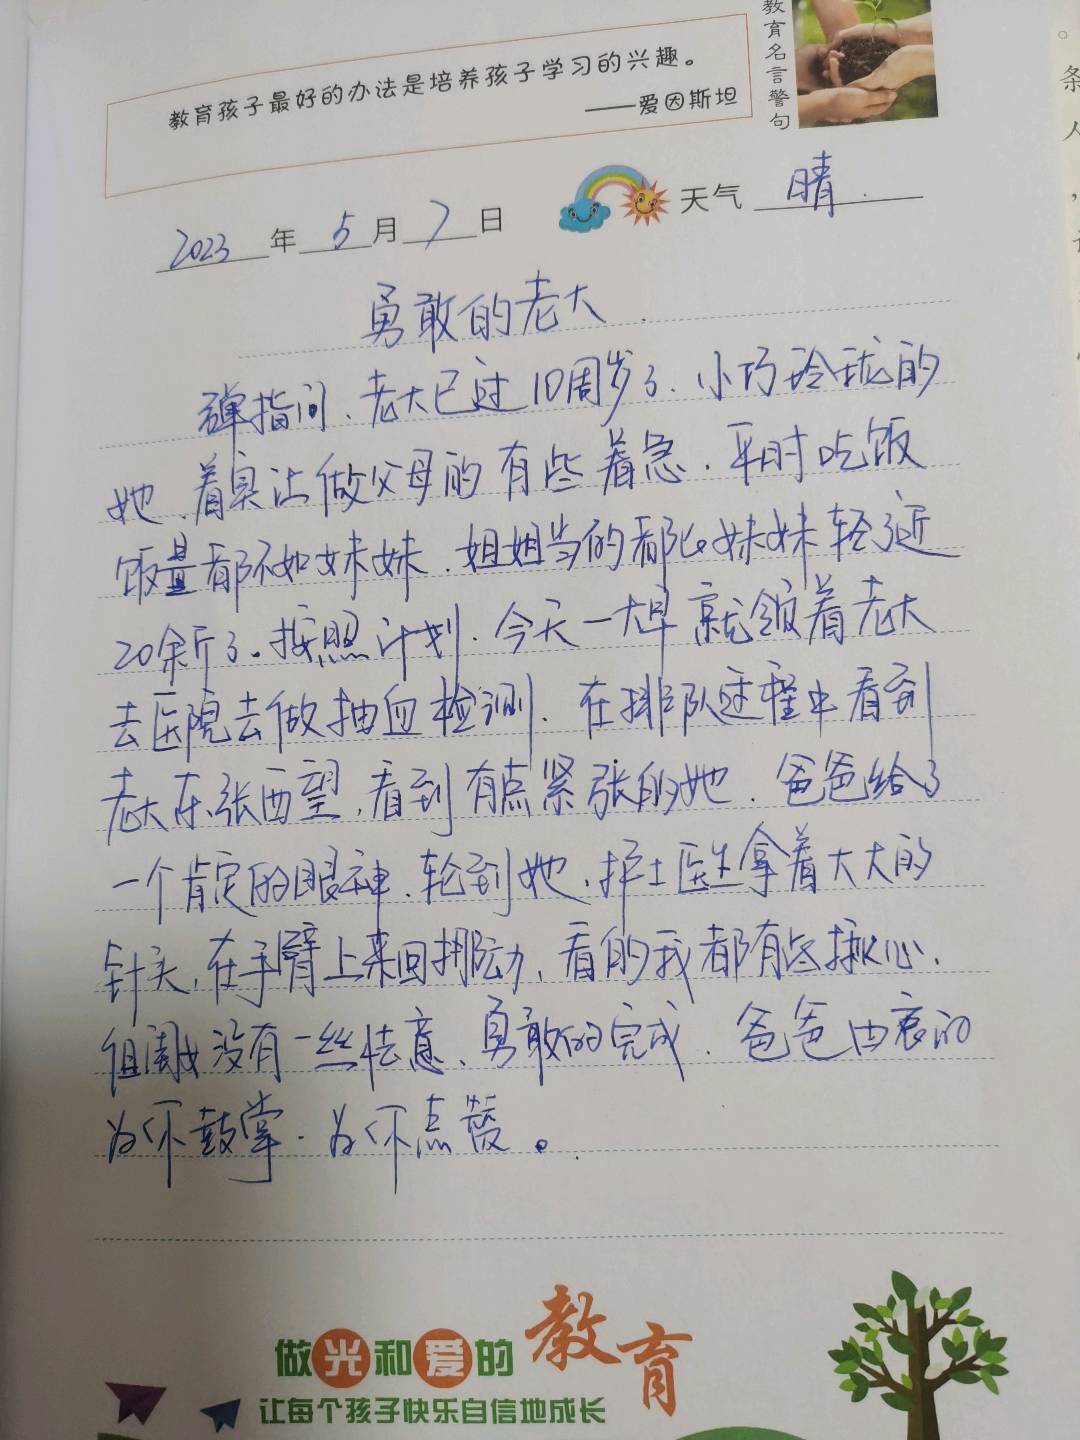 教育名言警句
教育孩子最好的办法是培养孩子学习的兴趣。
——爱因斯坦
2023年5月7日 天气 晴.
勇敢的老大
弹指间、老大已过10周岁了、小巧玲珑的
她、着实让做父母的有些着急.平时吃饭
饭量都不如妹妹.姐姐当的都比妹妹轻了近
20余斤了。按照计划.今天一大早就领着老大
去医院去做抽血检测.在排队过程中看到
老大东张西望,看到有点紧张的她.爸爸给了
一个肯定的眼神、轮到她、护士医生拿着大大的
针头,在手臂上来回挪动、看的我都有些揪心.
但闺女没有一丝怯意、勇敢的完成.爸爸由衷的
为你鼓掌.为你点赞。
做光和爱的教育
让每个孩子快乐自信地成长